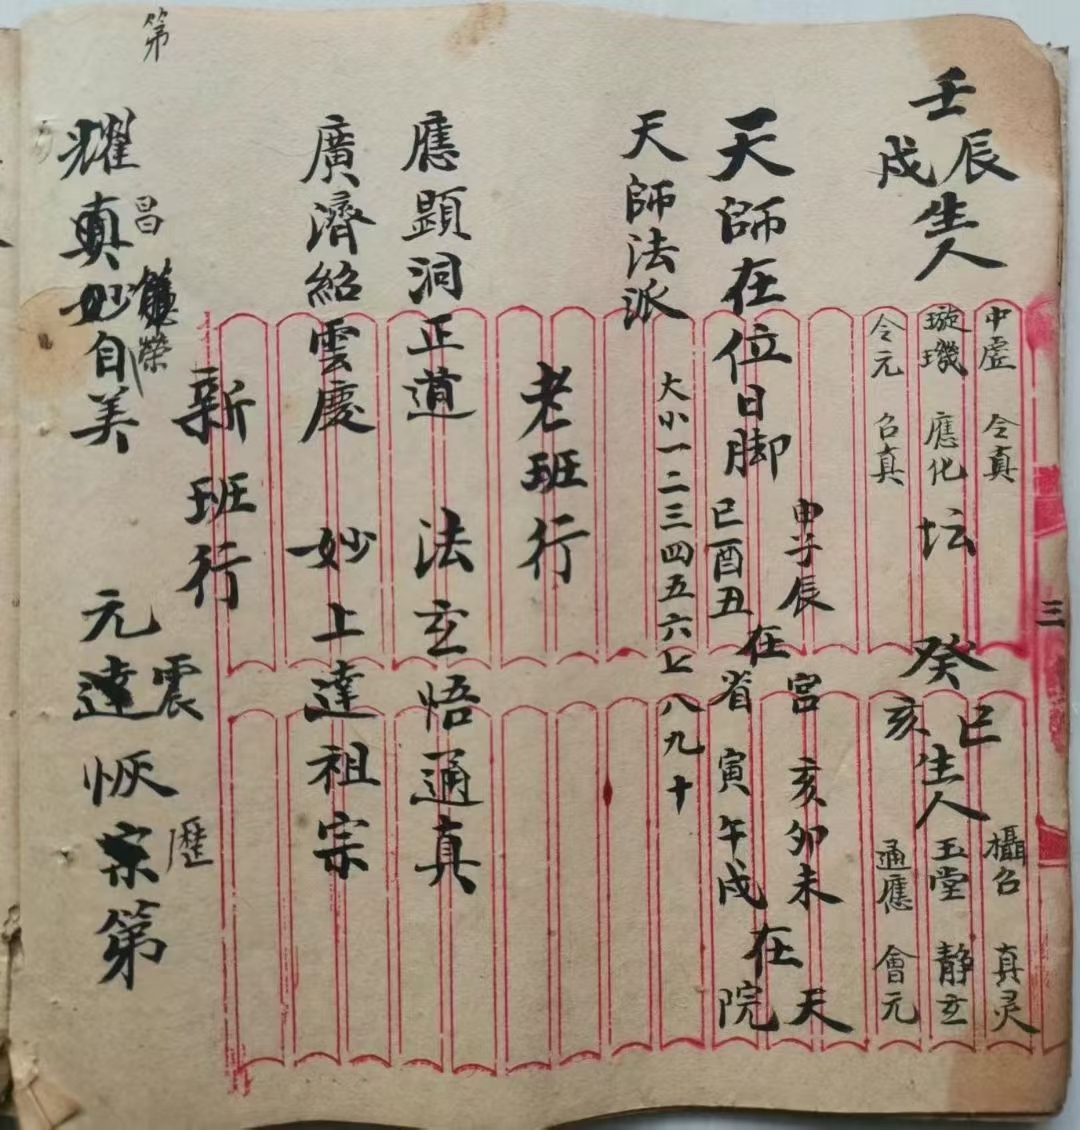 壬辰戌生人
中虚 令真
璇璣 應化 坛
令元 召真
癸巳亥生人
攝召 真灵
玉堂 静玄
通應 會元
三
天師在位日脚
申子辰 在宫 亥卯未 在天
巳酉丑 省 寅午戌 院
天師法派
大小一二三四五六七八九十
老班行
應顕洞正道 法玄悟通真
廣濟紹雲慶 妙上達祖宗
新班行
昌 榮 震 歷
耀真妙自美 元達恢宗第
第